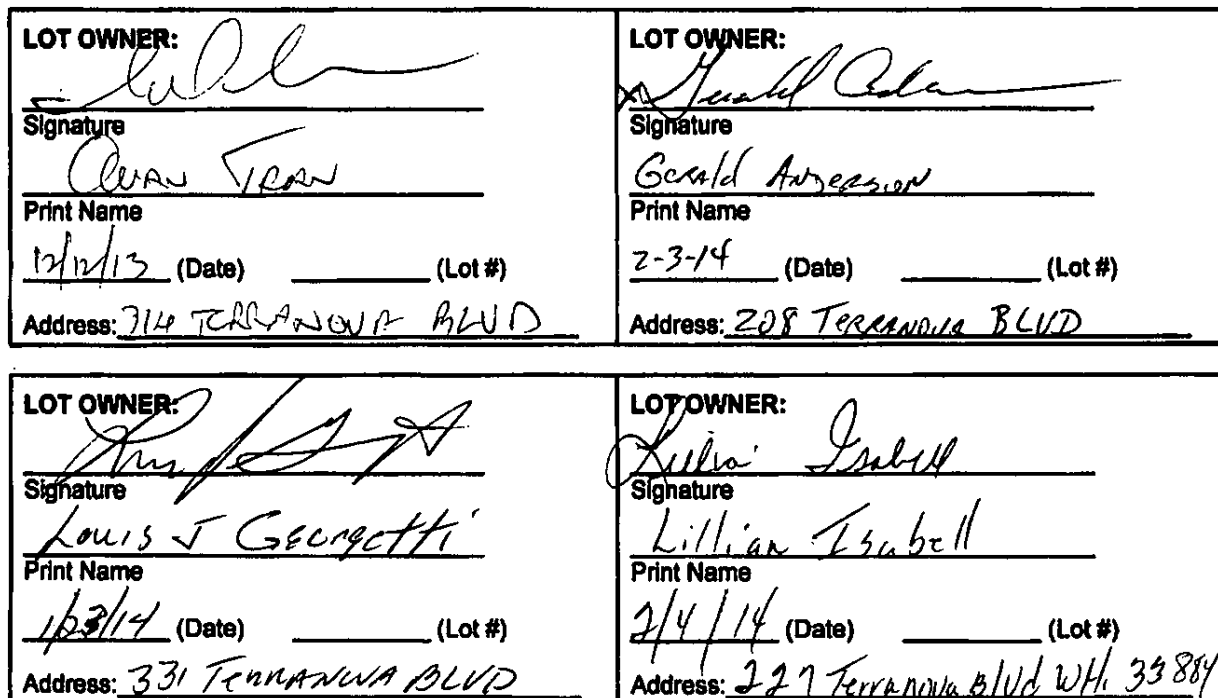 LOT OWNER:
Signature
Quan Tran
Print Name
12/12/13 (Date) (Lot #)
Address: 314 TERRANOVA BLVD
LOT OWNER:
Gerald
Signature
Gerald Anderson
Print Name
2-3-14 (Date) (Lot #)
Address: 208 Terranova BLVD
LOT OWNER:
Signature
Louis J Georgetti
Print Name
1/23/14 (Date) (Lot #)
Address: 331 TERRANOVA BLVD
LOT OWNER:
Lillian Isabell
Signature
Lillian Isabell
Print Name
2/4/14 (Date) (Lot #)
Address: 227 Terranova Blvd WH. 33884